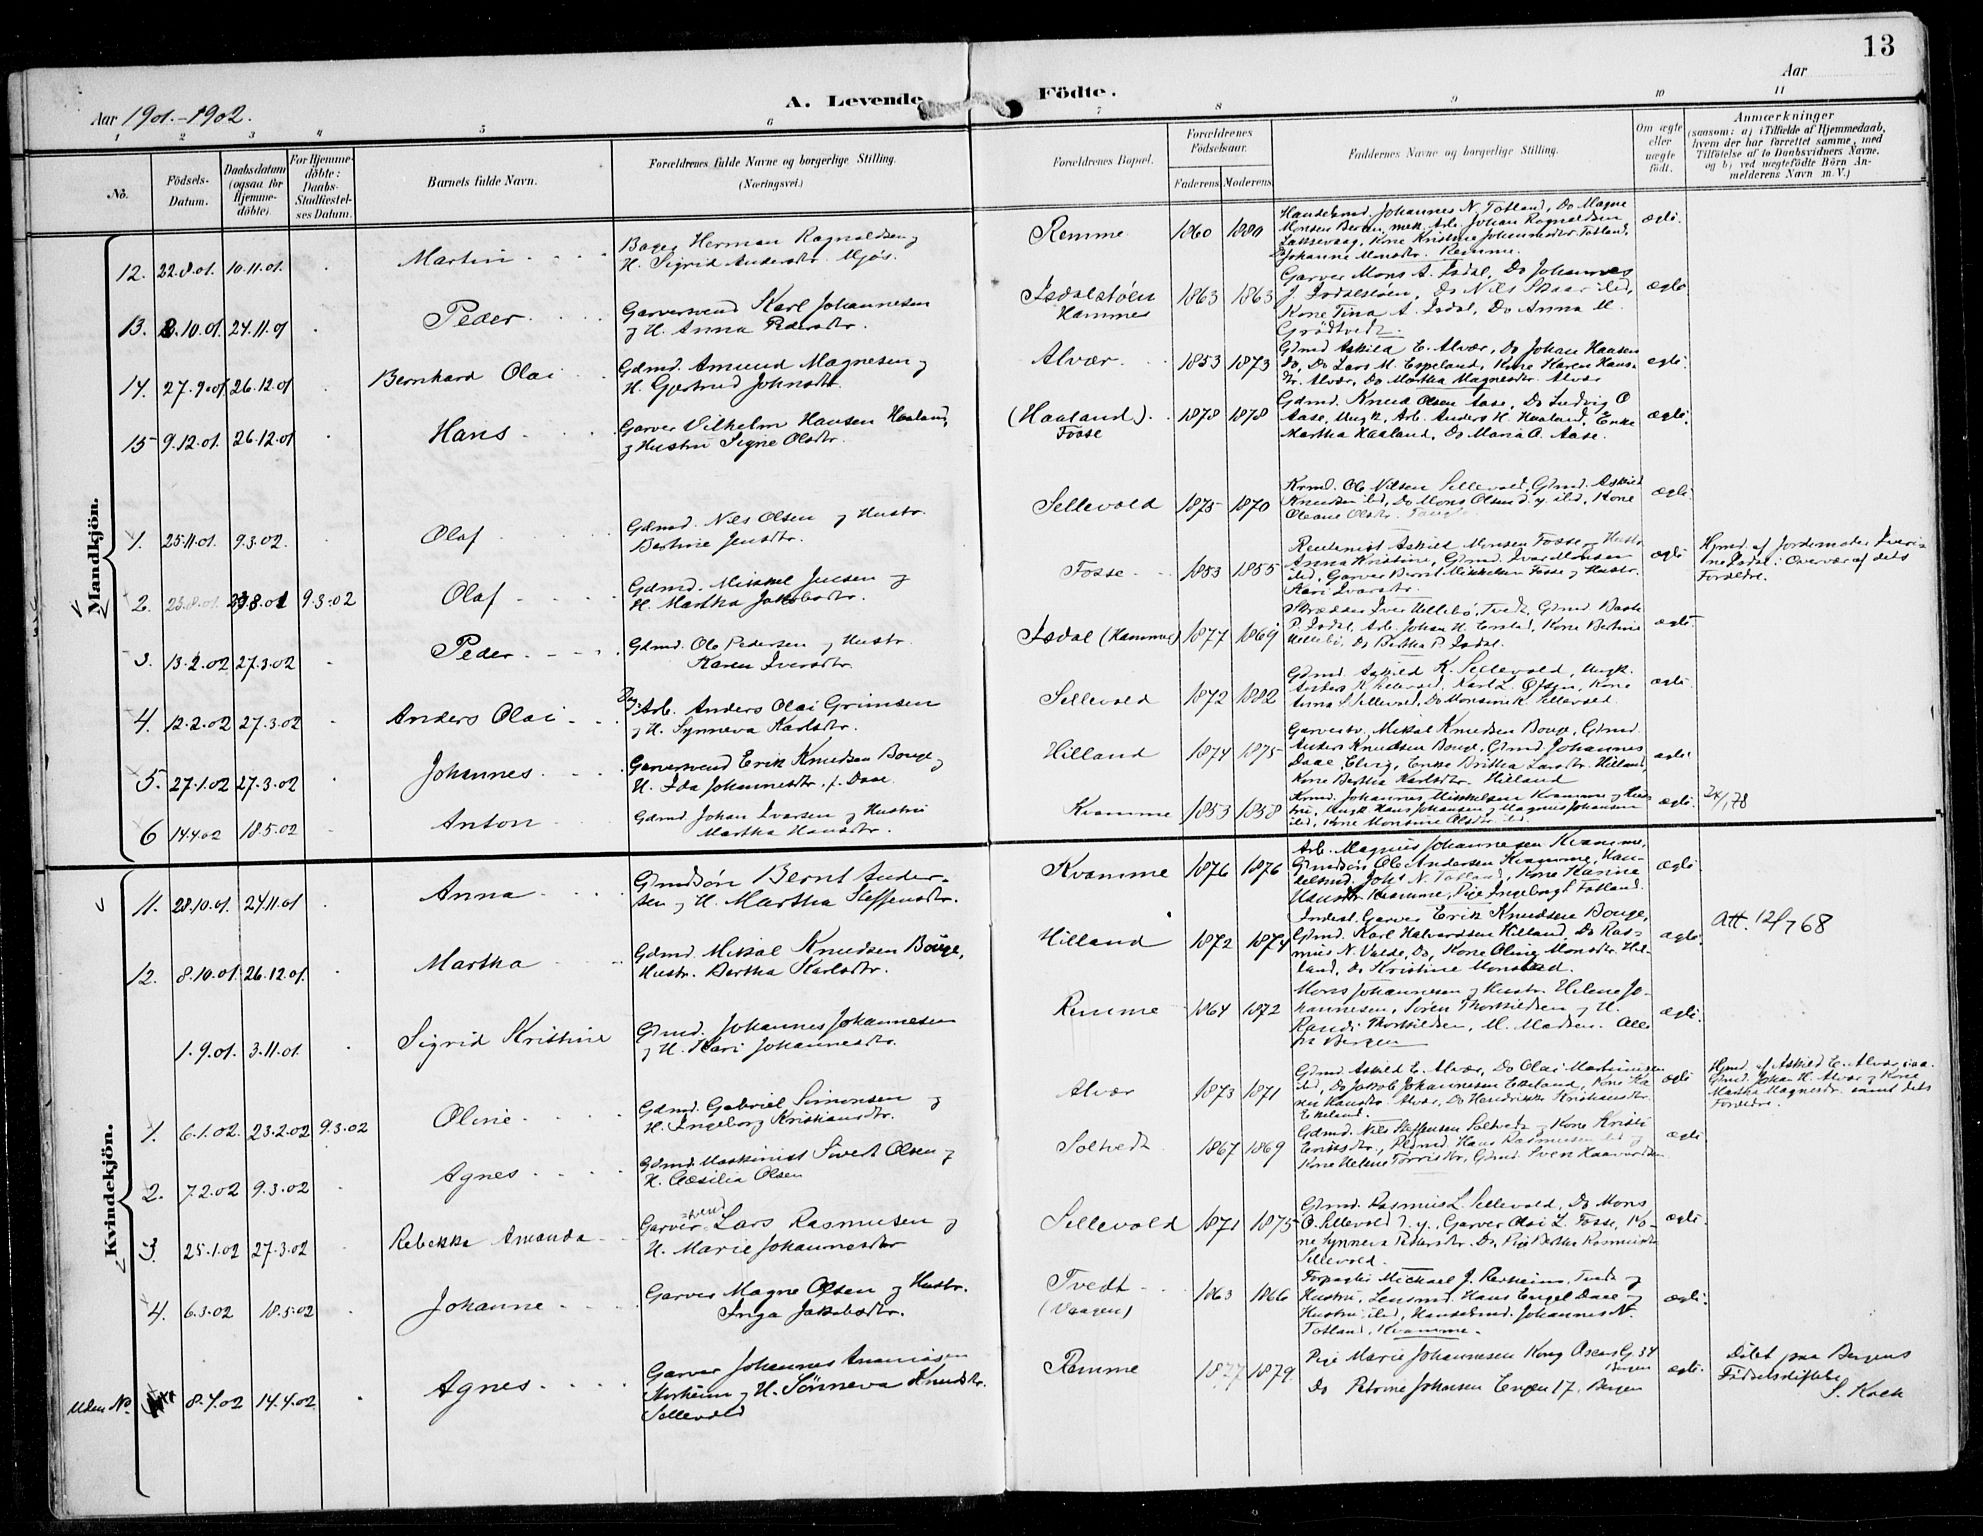 13
Aar 1901.-1902.
A. Levende Födte.
Aar
1 2 3 4 5 6 7 8 9 10 11
No.
Födsels-
Datum.
Daabsdatum
(ogsaa for
Hjemme-
döbte)
For Hjemme-
döbte:
Daabs-
Stadfæstel-
ses Datum.
Barnets fulde Navn.
Forældrenes fulde Navne og borgerlige Stilling.
(Næringsvei.)
Forældrenes Bopæl.
Forældrenes
Födselsaar.
Faderens Moderens
Faddernes Navne og borgerlige Stilling.
Om ægte
eller
uægte
födt.
Anmærkninger
(saasom: a) i Tilfælde af Hjemmedaab,
hvem der har forrettet samme, med
Tilföielse af to Daabsvidners Navne,
og b) ved uægtefödte Börn An-
melderens Navn m. V.)
Mandkjön.
12. 22.8.01. 10.11.01. Martin
Herman Ragnvaldsen og
H. Sigrid Andersdtr. Mjös.
Remme 1860 1880
Handelsmd. Johannes N. Totland, Do Magne
Monsen Johan Ragnvaldsen
Laksevaag, Kone Kristine Johannesdtr. Totland,
Do Johanne Monsdtr. Remme
ægte.
13. 8.10.01 24.11.01 Peder
Garversvend Karl Johannesen
og H. Anna Pedersdtr.
Isdalstöen
Hammer
1863 1863
Garver Mons A. Isdal, Do Johannes
J. Isdalstöen, Do Nils Skaar ibd,
Kone Tina A. Isdal, Do Anna M.
Grödtvedt.
ægte
14. 27.9.01 26.12.01 Bernhard Olai
Gdmd. Amund Magnesen og
H. Gjertrud Johnsdtr.
Alvær 1853 1873
Gdmd Askild E. Alvær, Do Johan Hansen
Do, Do Lars M. Espeland, Kone Karen Hans-
dtr. Alvær, Do Martha Magnesdtr. Alvær
ægte.
15 9.12.01. 26.12.01 Hans
Garver Vilhelm Hansen Haaland,
og Hustru Signe Olsdtr.
(Haaland).
Fosse
1878 1878
Gdmd. Knud Olsen Aase, Do Ludvig O
Aase, Ungk. Arb. Anders H. Haaland, Enke
Martha Haaland, Do Maria O. Aase.
ægte.
1. 25.11.01. 9.3.02. Olaf
Gdmd. Nils Olsen og Hustr.
Bertine Jensdtr.
Sellevold 1875 1870
Krmd. Ole Nilsen Sellevold, Gmd. Askild
Knudsen ibd, Do Mons Olsen d. y. ibd, Kone
Oleane Olsdtr.
ægte
2. 23.8.01. 23.8.01 9.3.02 Olaf
Gdmd. Mikkel Jensen og
H. Martha Jakobsdtr.
Fosse 1853 1855
Rendenist Askild Monsen Fosse og Hustr.
Anna Kristine, Gmd. Ivar Monsen
ibd, Garver Bernt Mikkelsen Fosse og Hustr.
Kari Ivarsdtr.
ægte
Hjmd. af Jordemoder Iveri-
ne Isdal i Overvær af dets
Forældre.
3. 13.2.02 27.3.02 Peder
Gdmd. Ole Pedersen og Hustr.
Karen Iversdtr.
Isdal (Hammer) 1877 1869
Skrædder Iver Ullebö, Tvedt, Gdmd.
P. Isdal, Arb. Johan H. Erstad, Kone Bertine
Ullebö, Do Bertha P. Isdal.
ægte
4. 12.2.02 27.3.02 Anders Olai
Dag: Arb. Anders Olai Grimsen
og H. Synneva Karlsdtr.
Sellevold 1872 1882
Gdmd Askild K. Sellevold, Ungk.
Anders K. Sellevold, Karl L. Kone
Anna S. Sellevold, Do Monsine K. Sellevold.
ægte.
5. 27.1.02 27.3.02 Johannes
Garversvend Erik Knudsen Bouge og
H. Ida Johannesdtr. f. Daae
Hilland 1874 1875
Garversv. Mikal Knudsen Bouge, Gmd.
Anders Knudsen Bouge, Gmd. Johannes
Daae, Elvig, Enke Britha Larsdtr. Hilland,
Kone Bertha Karlsdtr. Hilland
ægte
6 14.4.02 18.5.02 Anton
Gdmd Johan Ivarsen og Hustru
Martha Hansdtr.
Kvamme 1853 1858
Krmd. Johannes Mikkelsen Kvamme og Hus-
tru, Ungk. Hans Johansen og Magnus Johansen
ibd, Kone Monsine Olsdtr. ibd.
ægte.
Kvindekjön.
11. 28.10.01. 24.11.01 Anna
Gmdsön Bernt Ander-
sen og H. Martha Steffensdtr.
Kvamme 1876 1876
Arb. Magnus Johannesen Kvamme,
Gmdsön Ole Andersen Kvamme, Han-
delsmd. Johs N. Totland, Kone Karine
Hansdtr. Kvamme, Pige Ingeborg T. Totland.
ægte.
12. 8.10.01 26.12.01. Martha
Gdmd. Mikal Knudsen Bouge,
Hustr. Bertha Karlsdtr.
Hilland 1872 1874
Indest. Garver Erik Knudsen Bouge,
Gdmd. Karl Halvardsen Hilland, Do Ras-
mus N. Valde, Do, Kone Oline Monsdtr. Hil-
land, Do Kristine
ægte.
Att. 12/7 68
1.9.01. 3.11.01. Sigrid Kristine
Gmd. Johannes Johannesen
og H. Kari Johannesdtr.
Remme 1864 1872
Mons Johannesen og Hustr. Helene Jo-
hannesen, Sören Thorkildsen og H.
Randi Thorkildsen, M. Madsen. Alle
fra Bergen
ægte.
1. 6.1.02. 23.2.02 9.3.02 Oline
Gdmd. Gabriel Simonsen og
H. Ingeborg Kristiansdtr.
Alvær 1873 1871
Gdmd Askild E. Alvær, Do Olai
ibd, Do Jakob Johannesen Ekeland, Kone Ka-
ren Hansdtr. Alvær, Do Hendrikke Kristiansdtr.
Ekeland.
ægte
Hjmd. af Askild E. Alvær,
Gmd. Johan H. Alvær og Kone
Martha Magnesdtr. samt dets
Forældre.
2. 7.2.02 9.3.02 Agnes
Gdmd Maskinist Sivert Olsen og
H. Cæsilia Olsen
Soltvedt 1867 1869
Gdmd. Nils Steffensen Soltvedt og Kone Kristi
Eriksdtr., Gdmd. Hans Rasmussen ibd og
Kone Helene Torrisdtr., Gdmd. Sven
ægte
3. 25.1.02 27.3.02 Rebekka Amanda
Garver-svend Lars Rasmusen og
H. Marie Johannesdtr
Sellevold 1871 1875
Gmd. Rasmus L. Sellevold, Do Mons
O. Sellevold d. y., Garver Olai L. Fosse, Ko-
ne Synneva Pedersdtr. Do, Pige Bertha Rasmusdtr
Sellevold.
ægte.
4. 6.3.02 18.5.02 Johanne
Garver Magne Olsen og Hustr.
Inga Jakobsdtr.
Tvedt
(Vaagen)
1863 1866
Forpagter Michael J. Rexheim, Tvedt og
Hustru, Lensmd. Hans Engel Daae og
Hustru ibd, Handelsmd. Johannes N.
Totland, Kvamme.
ægte.
Uden No. 8.4.02 14.4.02 Agnes
Garver Johannes
og H. Sönneva Knudsdtr.
Sellevold
Remme 1877 1879.
Pige Marie Johannesen Kong Oscars G. 34
Bergen
Do Petrine Johansen Engen 17. Bergen
ægte.
Döbt paa Bergens
Födselsstiftelse
S. Koch